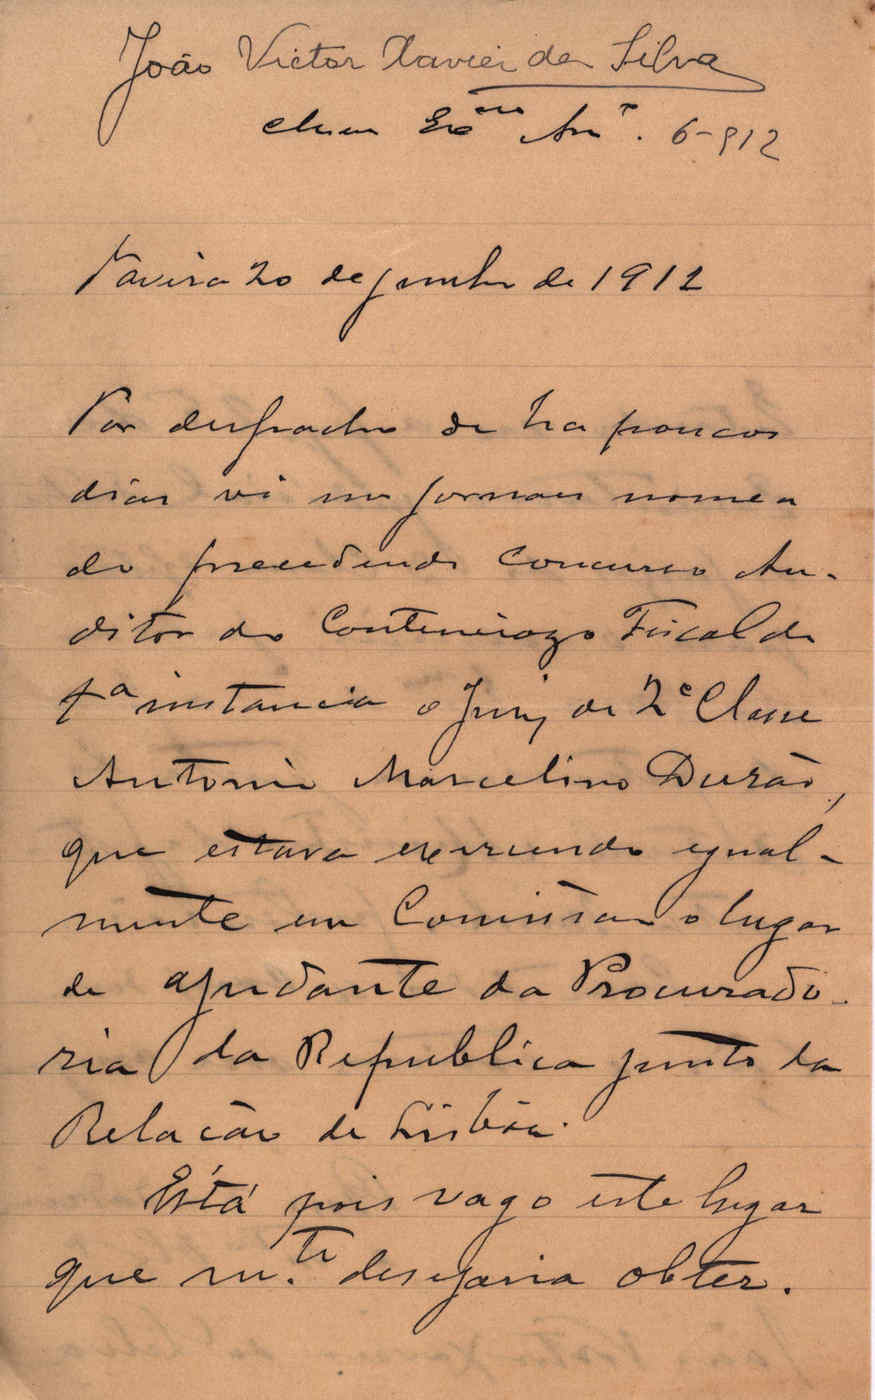 João Victor Xavier da Silva
Meu Exmo Amº. 6-912
Tavira 20 de junho de 1912
Por despacho de ha poucos
dias vi nos jornaes nomea
do precedendo concurso Au-
ditor do Contencioso Fiscal de
1ª instancia o Juiz de 2ª Classe
Antonio Marcelino Durão,
que estava exercendo egual-
mente em Comissão o lugar
de ajudante da Procurado-
ria da Republica junto da
Relação de Lisbôa.
Está pois vago este lugar
que m.to desejaria obter.